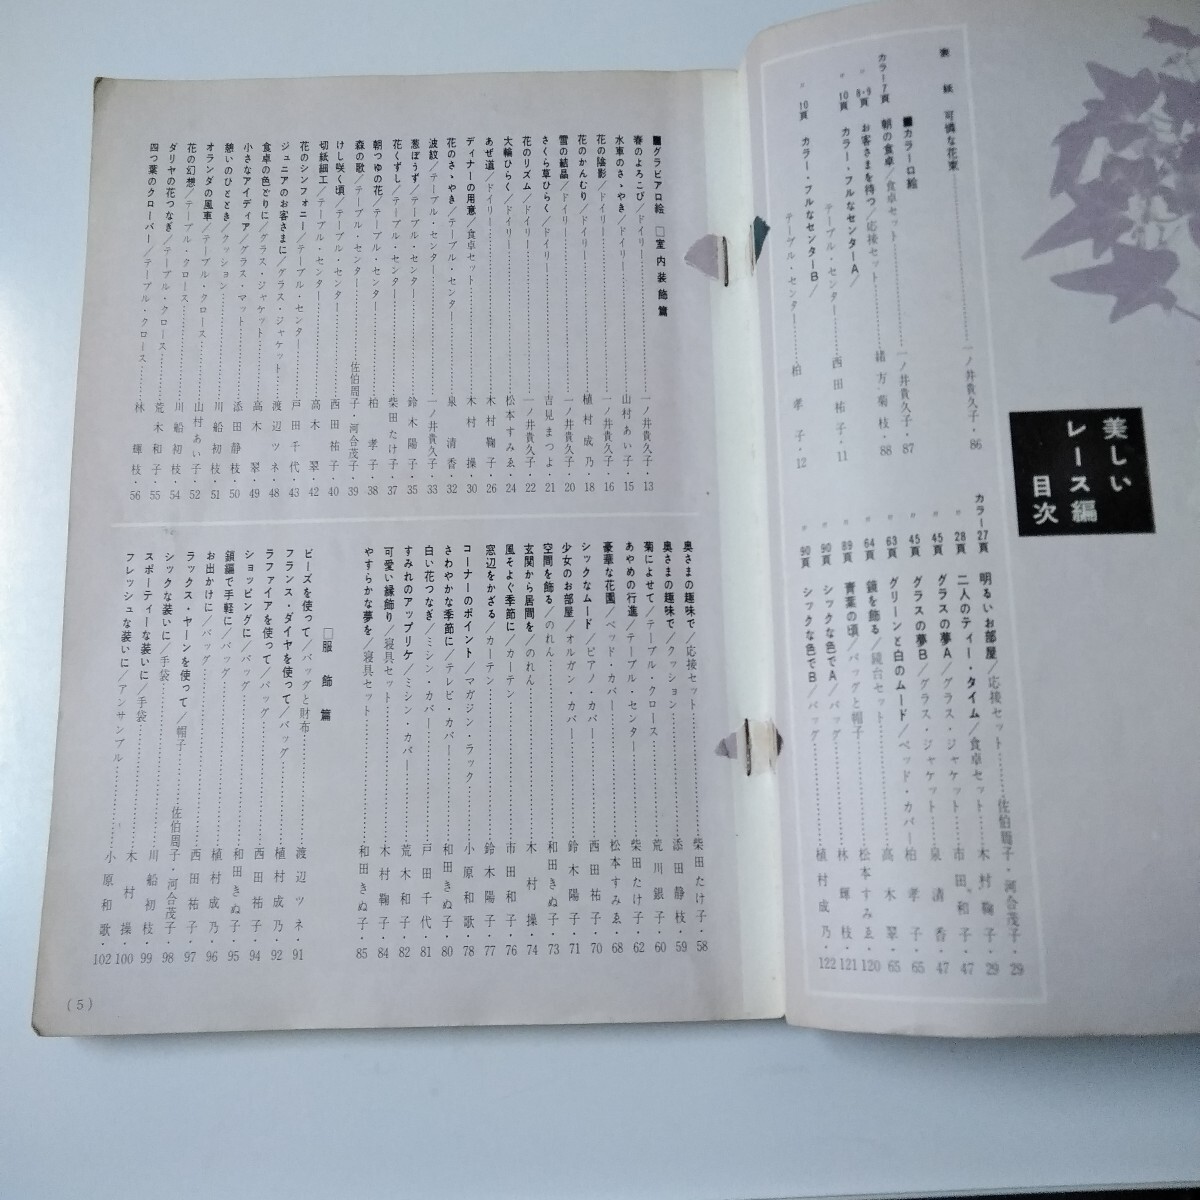 美しい
レース編
目次
表紙 可憐な花束……一ノ井貴久子・86
■カラー口絵
カラー7頁 朝の食卓/食卓セット……一ノ井貴久子・87
〃 8・9頁 お客さまを待つ/応接セット……緒方菊枝・88
〃 10頁 カラー・フルなセンターA/テーブル・センター……西田祐子・11
〃 10頁 カラー・フルなセンターB/テーブル・センター……柏孝子・12
カラー27頁 明るいお部屋/応接セット……佐伯周子・河合茂子・29
〃 28頁 二人のティー・タイム/食卓セット……木村鞠子・29
〃 45頁 グラスの夢A/グラス・ジャケット……市田和子・47
〃 45頁 グラスの夢B/グラス・ジャケット……泉清香・47
〃 63頁 グリーンと白のムード/ベッド・カバー……柏孝子・65
〃 64頁 鏡を飾る/鏡台セット……高木翠・65
〃 89頁 青葉の頃/バッグと帽子……松本すみゑ・120
〃 90頁 シックな色でA/バッグ……林輝枝・121
〃 90頁 シックな色でB/バッグ……植村成乃・122
■グラビア口絵 □室内装飾篇
春のよろこび/ドイリー……一ノ井貴久子・13
水車のさゝやき/ドイリー……山村あい子・15
花の陰影/ドイリー……一ノ井貴久子・16
花のかんむり/ドイリー……植村成乃・18
雪の結晶/ドイリー……一ノ井貴久子・20
さくら草ひらく/ドイリー……吉見まつよ・21
花のリズム/ドイリー……一ノ井貴久子・22
大輪ひらく/ドイリー……松本すみゑ・24
あぜ道/ドイリー……木村鞠子・26
ディナーの用意/食卓セット……木村操・30
花のさゝやき/テーブル・センター……泉清香・32
波紋/テーブル・センター……一ノ井貴久子・33
葱ぼうず/テーブル・センター……鈴木陽子・35
花くずし/テーブル・センター……柴田たけ子・37
朝つゆの花/テーブル・センター……柏孝子・38
森の歌/テーブル・センター……佐伯周子・河合茂子・39
けし咲く頃/テーブル・センター……西田祐子・40
切紙細工/テーブル・センター……高木翠・42
花のシンフォニー/テーブル・センター……戸田千代・43
ジュニアのお客さまに/グラス・ジャケット……渡辺ツネ・48
食卓の色どりに/グラス・ジャケット……高木翠・49
小さなアイディア/グラス・マット……添田静枝・50
憩いのひととき/クッション……川船初枝・51
オランダの風車/テーブル・クロース……山村あい子・52
花の幻想/テーブル・クロース……川船初枝・54
ダリヤの花つなぎ/テーブル・クロース……荒木和子・55
四つ葉のクローバー/テーブル・クロース……林輝枝・56
奥さまの趣味で/応接セット……柴田たけ子・58
奥さまの趣味で/クッション……添田静枝・59
菊によせて/テーブル・クロース……荒川銀子・60
あやめの行進/テーブル・センター……柴田たけ子・62
豪華な花園/ベッド・カバー……松本すみゑ・68
シックなムード/ピアノ・カバー……西田祐子・70
少女のお部屋/オルガン・カバー……鈴木陽子・71
空間を飾る/のれん……和田きぬ子・73
玄関から居間を/のれん……木村操・74
風そよぐ季節に/カーテン……市田和子・76
窓辺をかざる/カーテン……鈴木陽子・77
コーナーのポイント/マガジン・ラック……小原和歌・78
さわやかな季節に/テレビ・カバー……和田きぬ子・80
白い花つなぎ/ミシン・カバー……戸田千代・81
すみれのアップリケ/ミシン・カバー……荒木和子・82
可愛い縁飾り/寝具セット……木村鞠子・84
やすらかな夢を/寝具セット……和田きぬ子・85
□服飾篇
ビーズを使って/バッグと財布……渡辺ツネ・91
フランス・ダイヤを使って/バッグ……植村成乃・92
ラファイアを使って/バッグ……西田祐子・94
ショッピングに/バッグ……和田きぬ子・95
鎖編で手軽に/バッグ……植村成乃・96
お出かけに/バッグ……西田祐子・97
ラックス・ヤーンを使って/帽子……佐伯周子・河合茂子・98
シックな装いに/手袋……川船初枝・99
スポーティーな装いに/手袋……木村操・100
フレッシュな装いに/アンサンブル……小原和歌・102
(5)